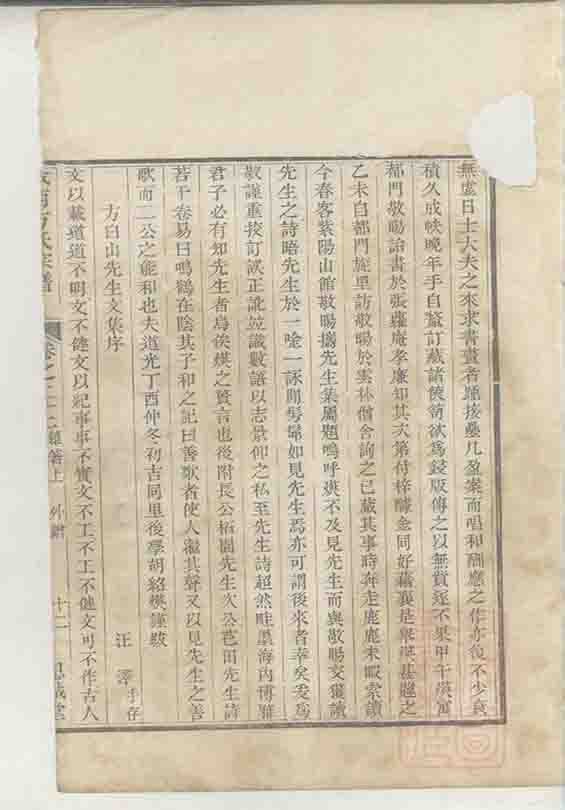 無虛日士大夫之來求書畫者踵接疊几盈案而唱和酬應之作亦復不少裒
積久成帙晚年手自釐訂藏諸篋笥欲爲鋟版傳之以無貲遂不果甲午煐寓
都門敬暘詒書於張蘿庵孝廉知其次第付梓醵金同好藉襄是舉煐甚韙之
乙未自都門旋里訪敬暘於雲林僧舍詢之已蕆其事時奔走鹿鹿未暇索讀
今春客紫陽山館敬暘攜先生集屬題嗚呼煐不及見先生而與敬暘交獲讀
先生之詩晤先生於一唫一詠間髣髴如見先生焉亦可謂後來者幸矣爰爲
敬謹重挍訂誤正訛並識數語以志景仰之私至先生詩超然畦逕海內博雅
君子必有知先生者烏俟煐之贅言也後附長公栢園先生次公芭田先生詩
若干卷易曰鳴鶴在陰其子和之記曰善歌者使人繼其聲又以見先生之善
歌而二公之能和也夫道光丁酉仲冬初吉同里後學胡紹煐謹跋
方白山先生文集序
汪澤 手存
文以載道道不明文不健文以紀事事不實文不工不工不健文可不作古人
方氏宗譜 卷之二十二 雜著上 外譜 十二 思誠堂